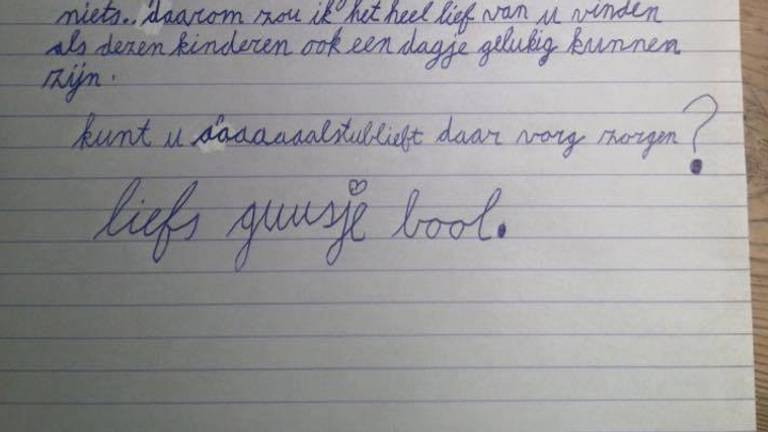 niets.. daarom zou ik het heel lief van u vinden
als dezen kinderen ook een dagje gelukig kunnen
zijn.
kunt u aaaaaaalstublieft daar vorg zorgen?
liefs guusje bool.